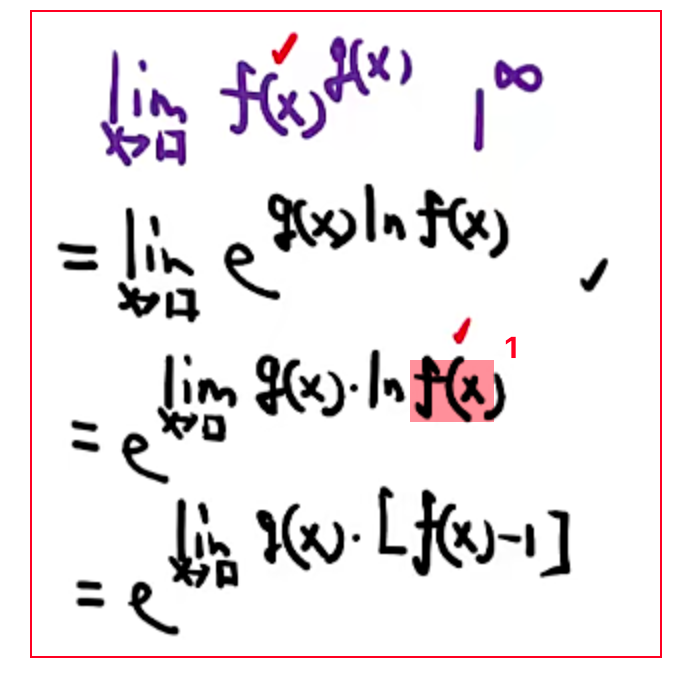 lim x→□ f(x)^g(x) 1^∞
= lim x→□ e^g(x) ln f(x)
= e^lim x→□ g(x)·ln f(x) 1
= e^lim x→□ g(x)·[f(x)-1]